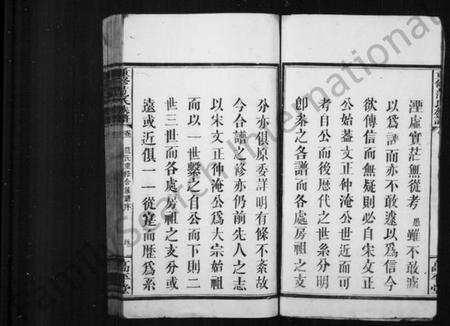 湮虛實茫無從考愚雖不敢遽
以爲譜而亦不敢遽以爲信今
欲傳信而無疑則必自宋文正
公始蓋文正仲淹公世近而可
考自公而後歷代之世系分明
卽秦之各譜而各處房祖之支
分亦俱原委詳明有條不紊故
今合譜之修亦仍前先人之志
以宋文正仲淹公爲大宗始祖
而以一世繫之自公而下則二
世三世而各處房祖之支分或
遠或近俱一一從寔而歷爲系
重修范氏族譜
范氏重修合族譜序
高平堂